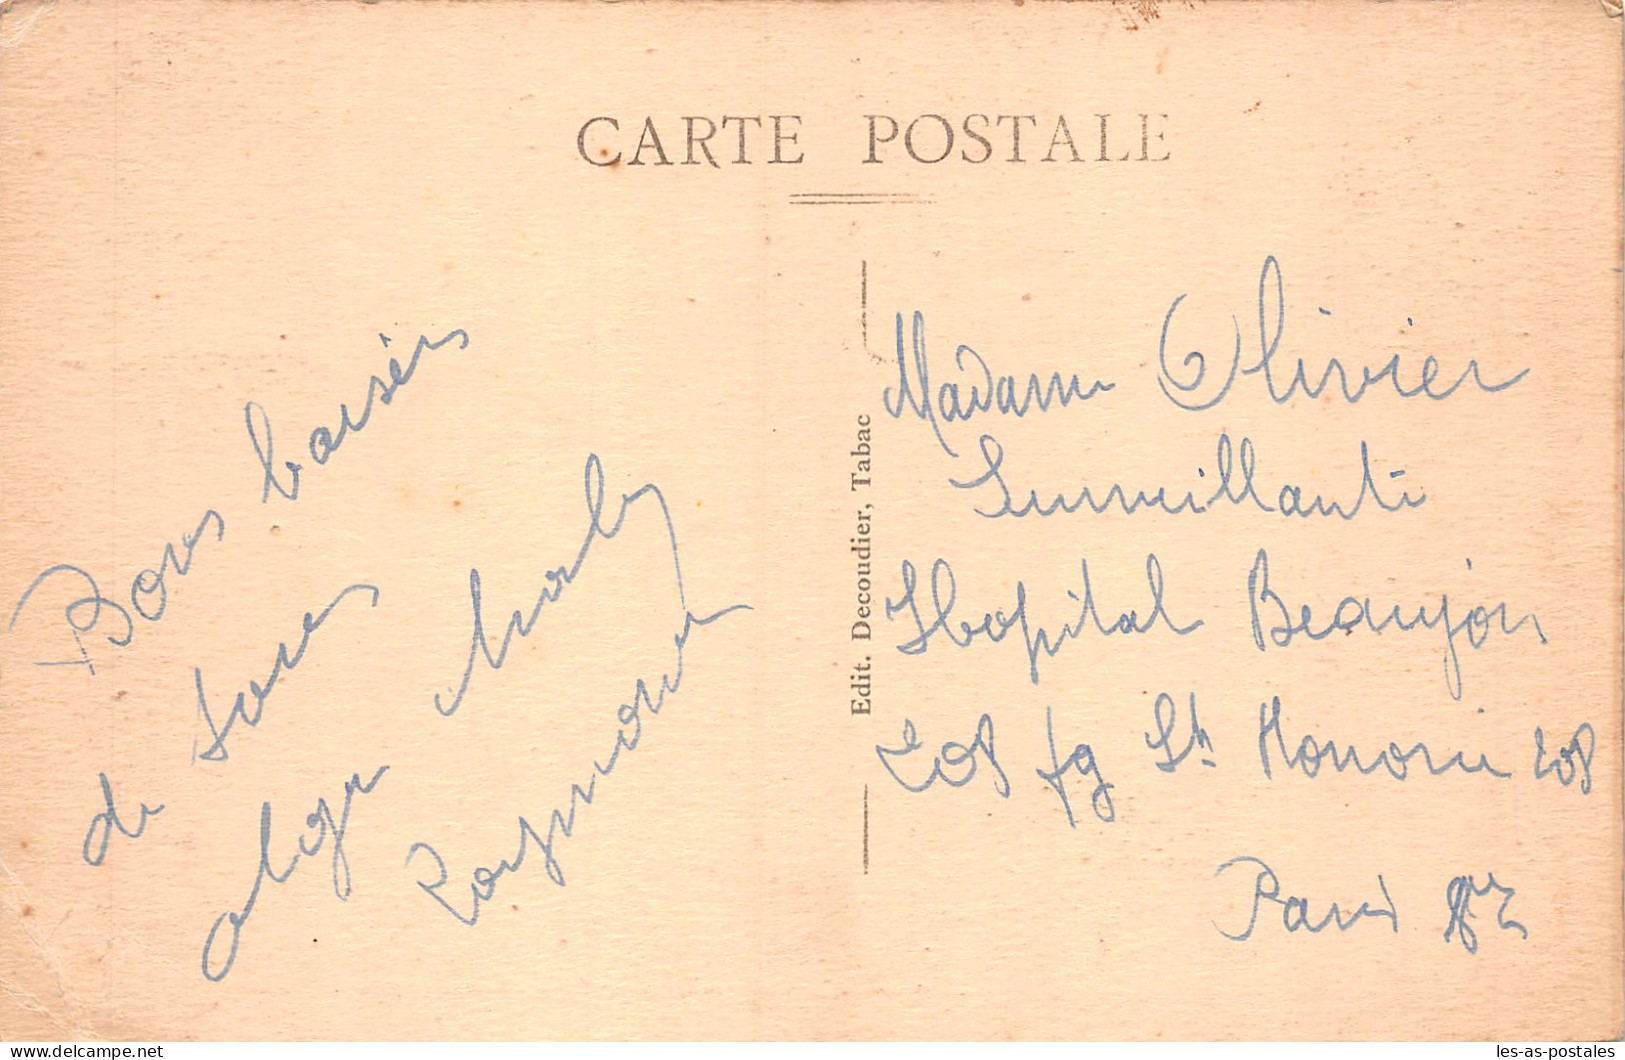 CARTE POSTALE
Bons baisers
de tous
Raymonde
Edit. Decoudier, Tabac
Madame Olivier
Surveillante
Hopital Beaujon
208 fg St Honoré 208
Paris
les-as-postales
delcampe.net